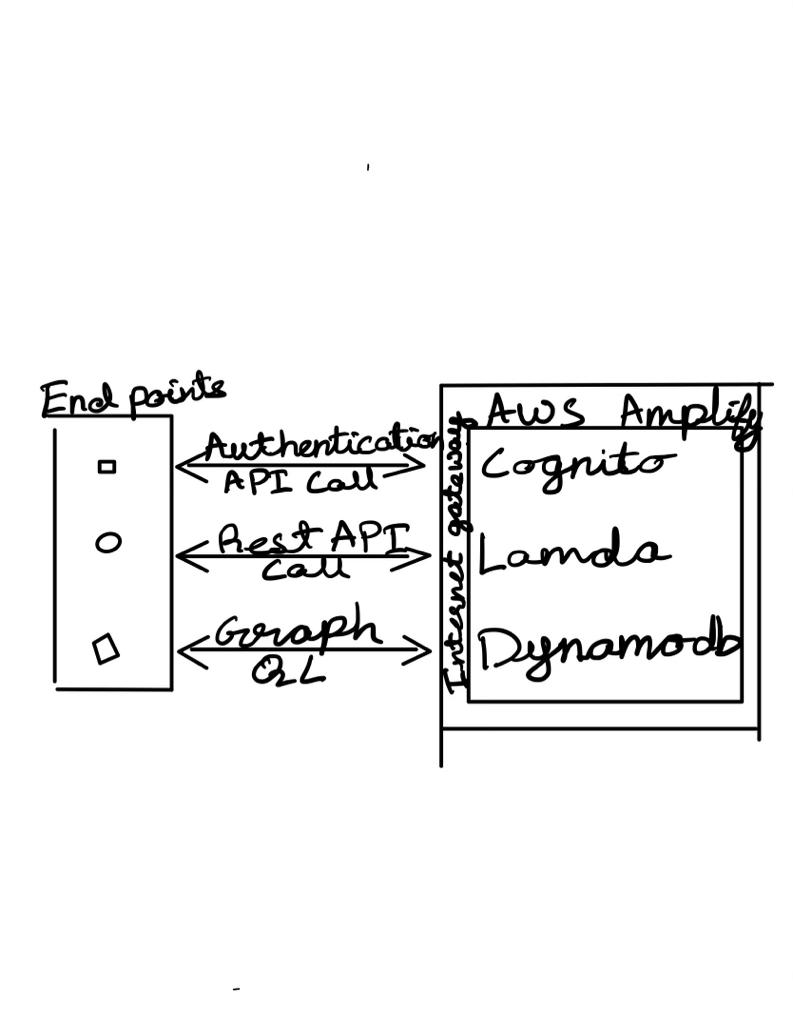 End points
Authentication
API Call
Rest API
Call
Graph
QL
Internet gateway
AWS Amplify
Cognito
Lamda
Dynamodb